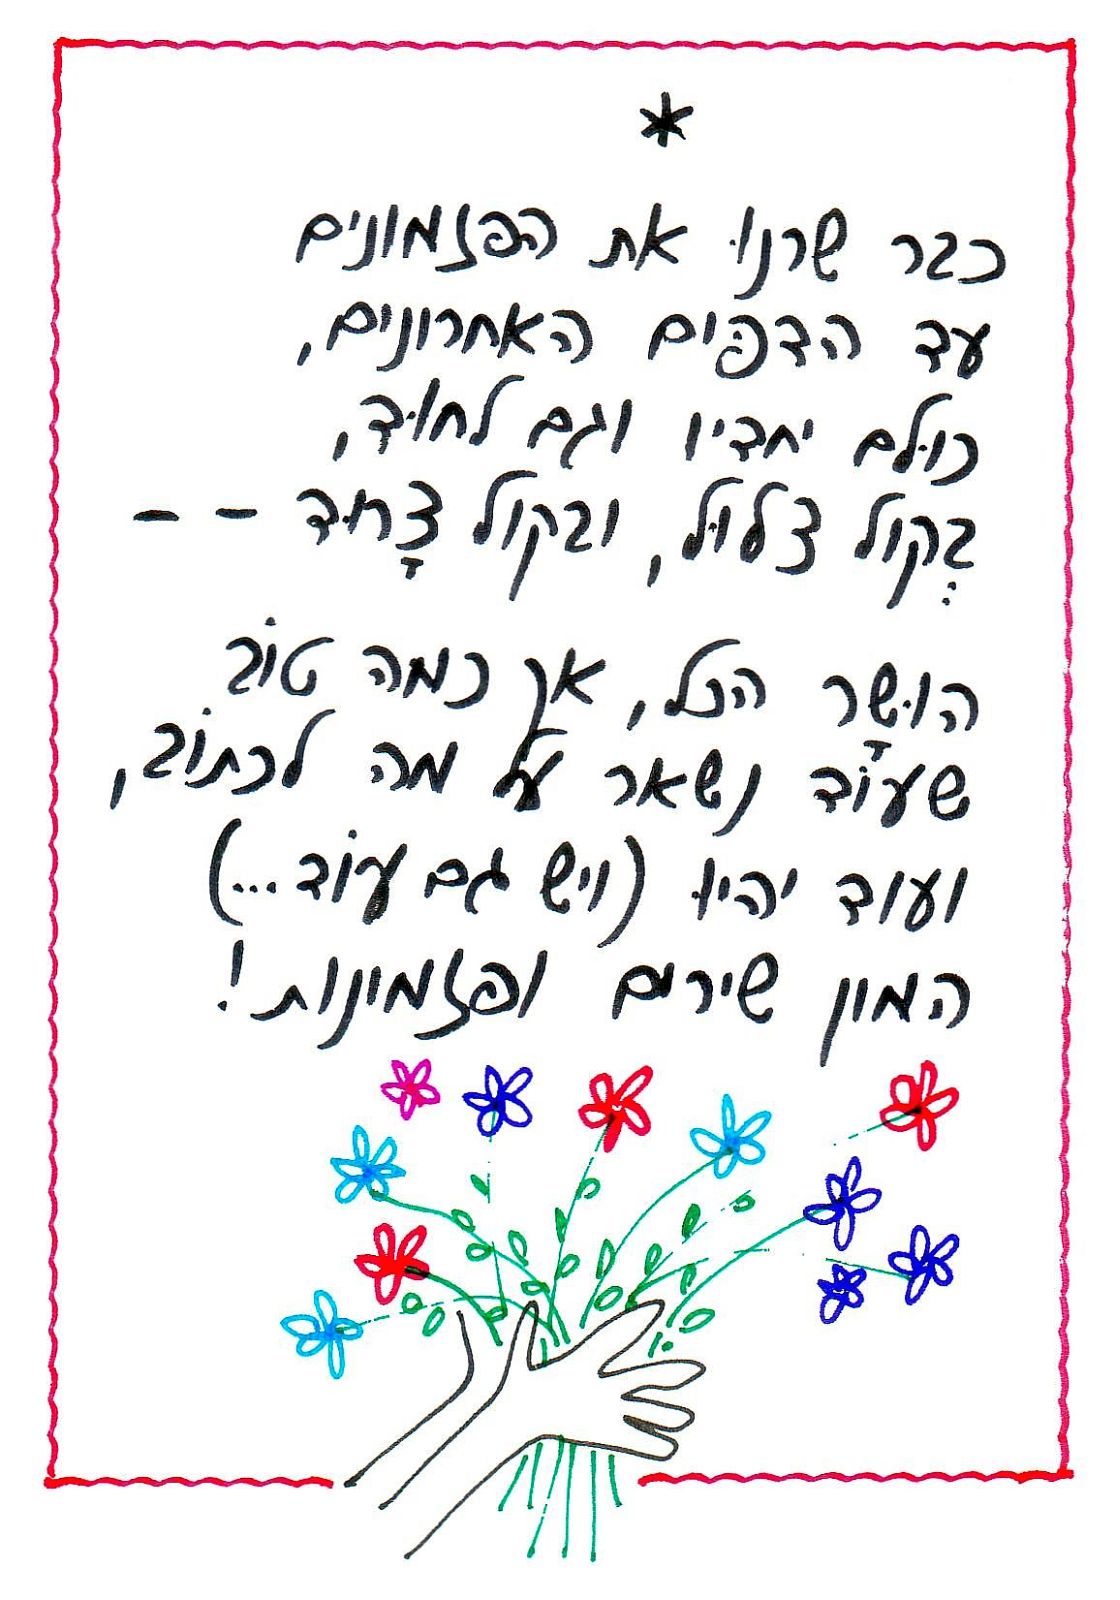 *
כבר שרנו את הפזמונים
עד הדפים האחרונים,
כולם יחדיו וגם לחוד,
בְּקול צלול, ובקול צָרוד - -
הושָר הכל, אך כמה טוֹב
שעוֹד נשאר על מה לכתוֹב,
ועוד יהיו (ויש גם עוֹד...)
המון שירים ופזמונות!